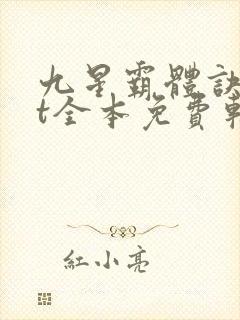 九星霸體訣
t全本免費
紅小亮